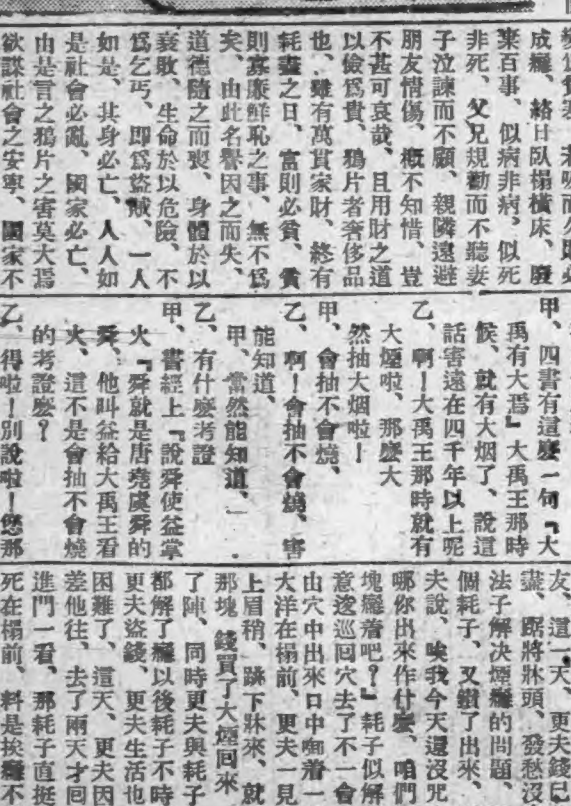 成癮、絡日臥榻橫床、廢
棄百事、似病非病、似死
非死、父兄規勸而不聽妻
子泣諫而不顧、親隣遠避
朋友情傷、概不知惜、豈
不甚可哀哉、且用財之道
以儉爲貴、鴉片者奢侈品
也、雖有萬貫家財、終有
耗盡之日、富則必貧、貧
則寡廉鮮恥之事、無不爲
矣、由此名譽因之而失、
道德隨之而喪、身體於以
衰敗、生命於以危險、不
爲乞丐、即爲盜賊、一人
如是、其身必亡、人人如
是社會必亂、國家必亡、
由是言之鴉片之害莫大焉
欲謀社會之安寧、國家不
甲、四書有這麼一句『大
禹有大焉』大禹王那時
候、就有大烟了、說這
話害遠在四千年以上呢
乙、啊！大禹王那時就有
大煙啦、那麼大
然抽大烟啦！
甲、會抽不會燒、
乙、啊！會抽不會燒、害
能知道、
甲、當然能知道、
乙、有什麼考證
甲、書經上『說舜使益掌
火『舜就是唐堯虞舜的
舜、他叫益給大禹王看
火、這不是會抽不會燒
的考證麼？
乙、得啦！別說啦！您那
友、這一天、更夫錢已
盡、踞將牀頭、發愁沒
法子解决煙癮的問題、
個耗子、又鑽了出來、
夫說、唉我今天還沒咒
哪你出來作什麼、咱們
塊癮着吧？』耗子似解
意逡巡回穴去了不一會
由穴中出來口中啣着一
大洋在榻前、更夫一見
上眉稍、跳下牀來、就
那塊錢買了大煙回來
了陣、同時更夫與耗子
都解了癮以後耗子不時
更夫盜錢、更夫生活也
困難了、這天、更夫因
差他往、去了兩天才回
進門一看、那耗子直挺
死在榻前、料是挨癮不